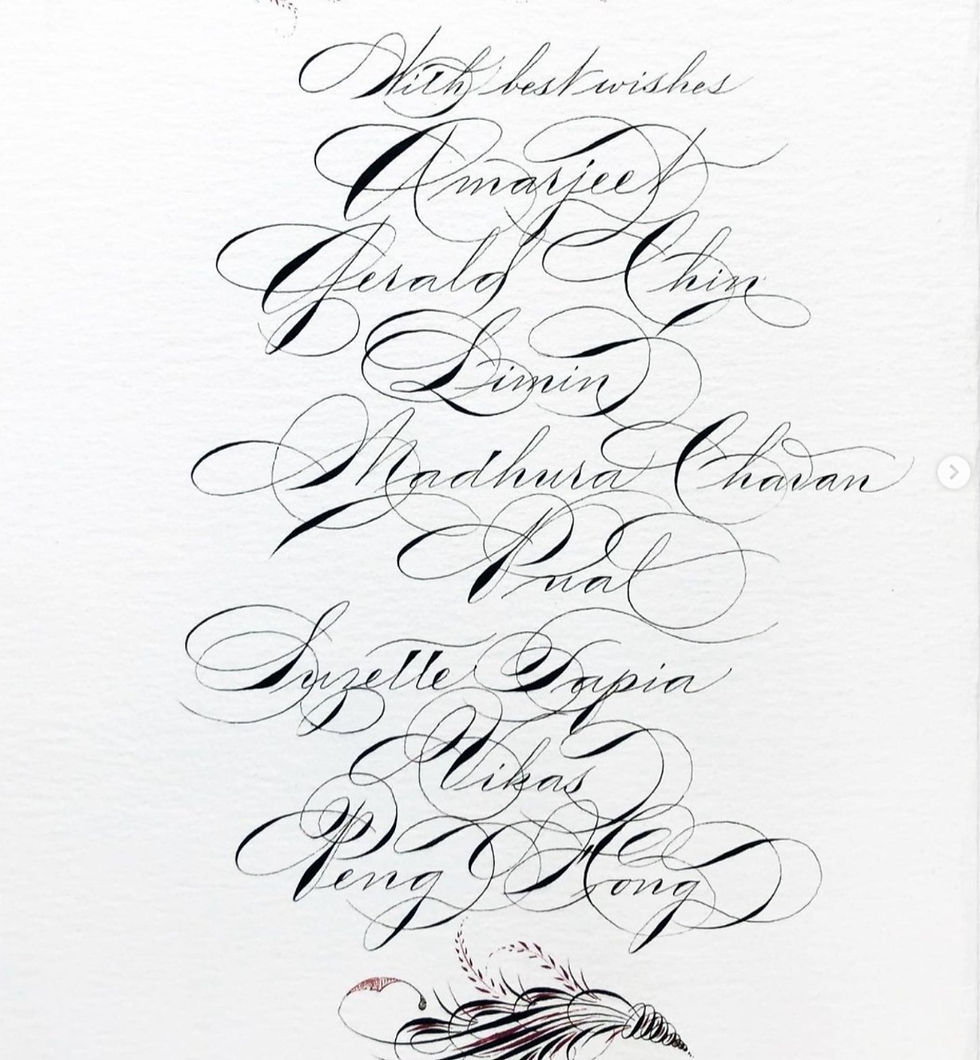 With best wishes
Amarjeet
Gerald Chin
Limin
Madhura Chavan
Pual
Suzette Tapia
Vikas
Peng Hong